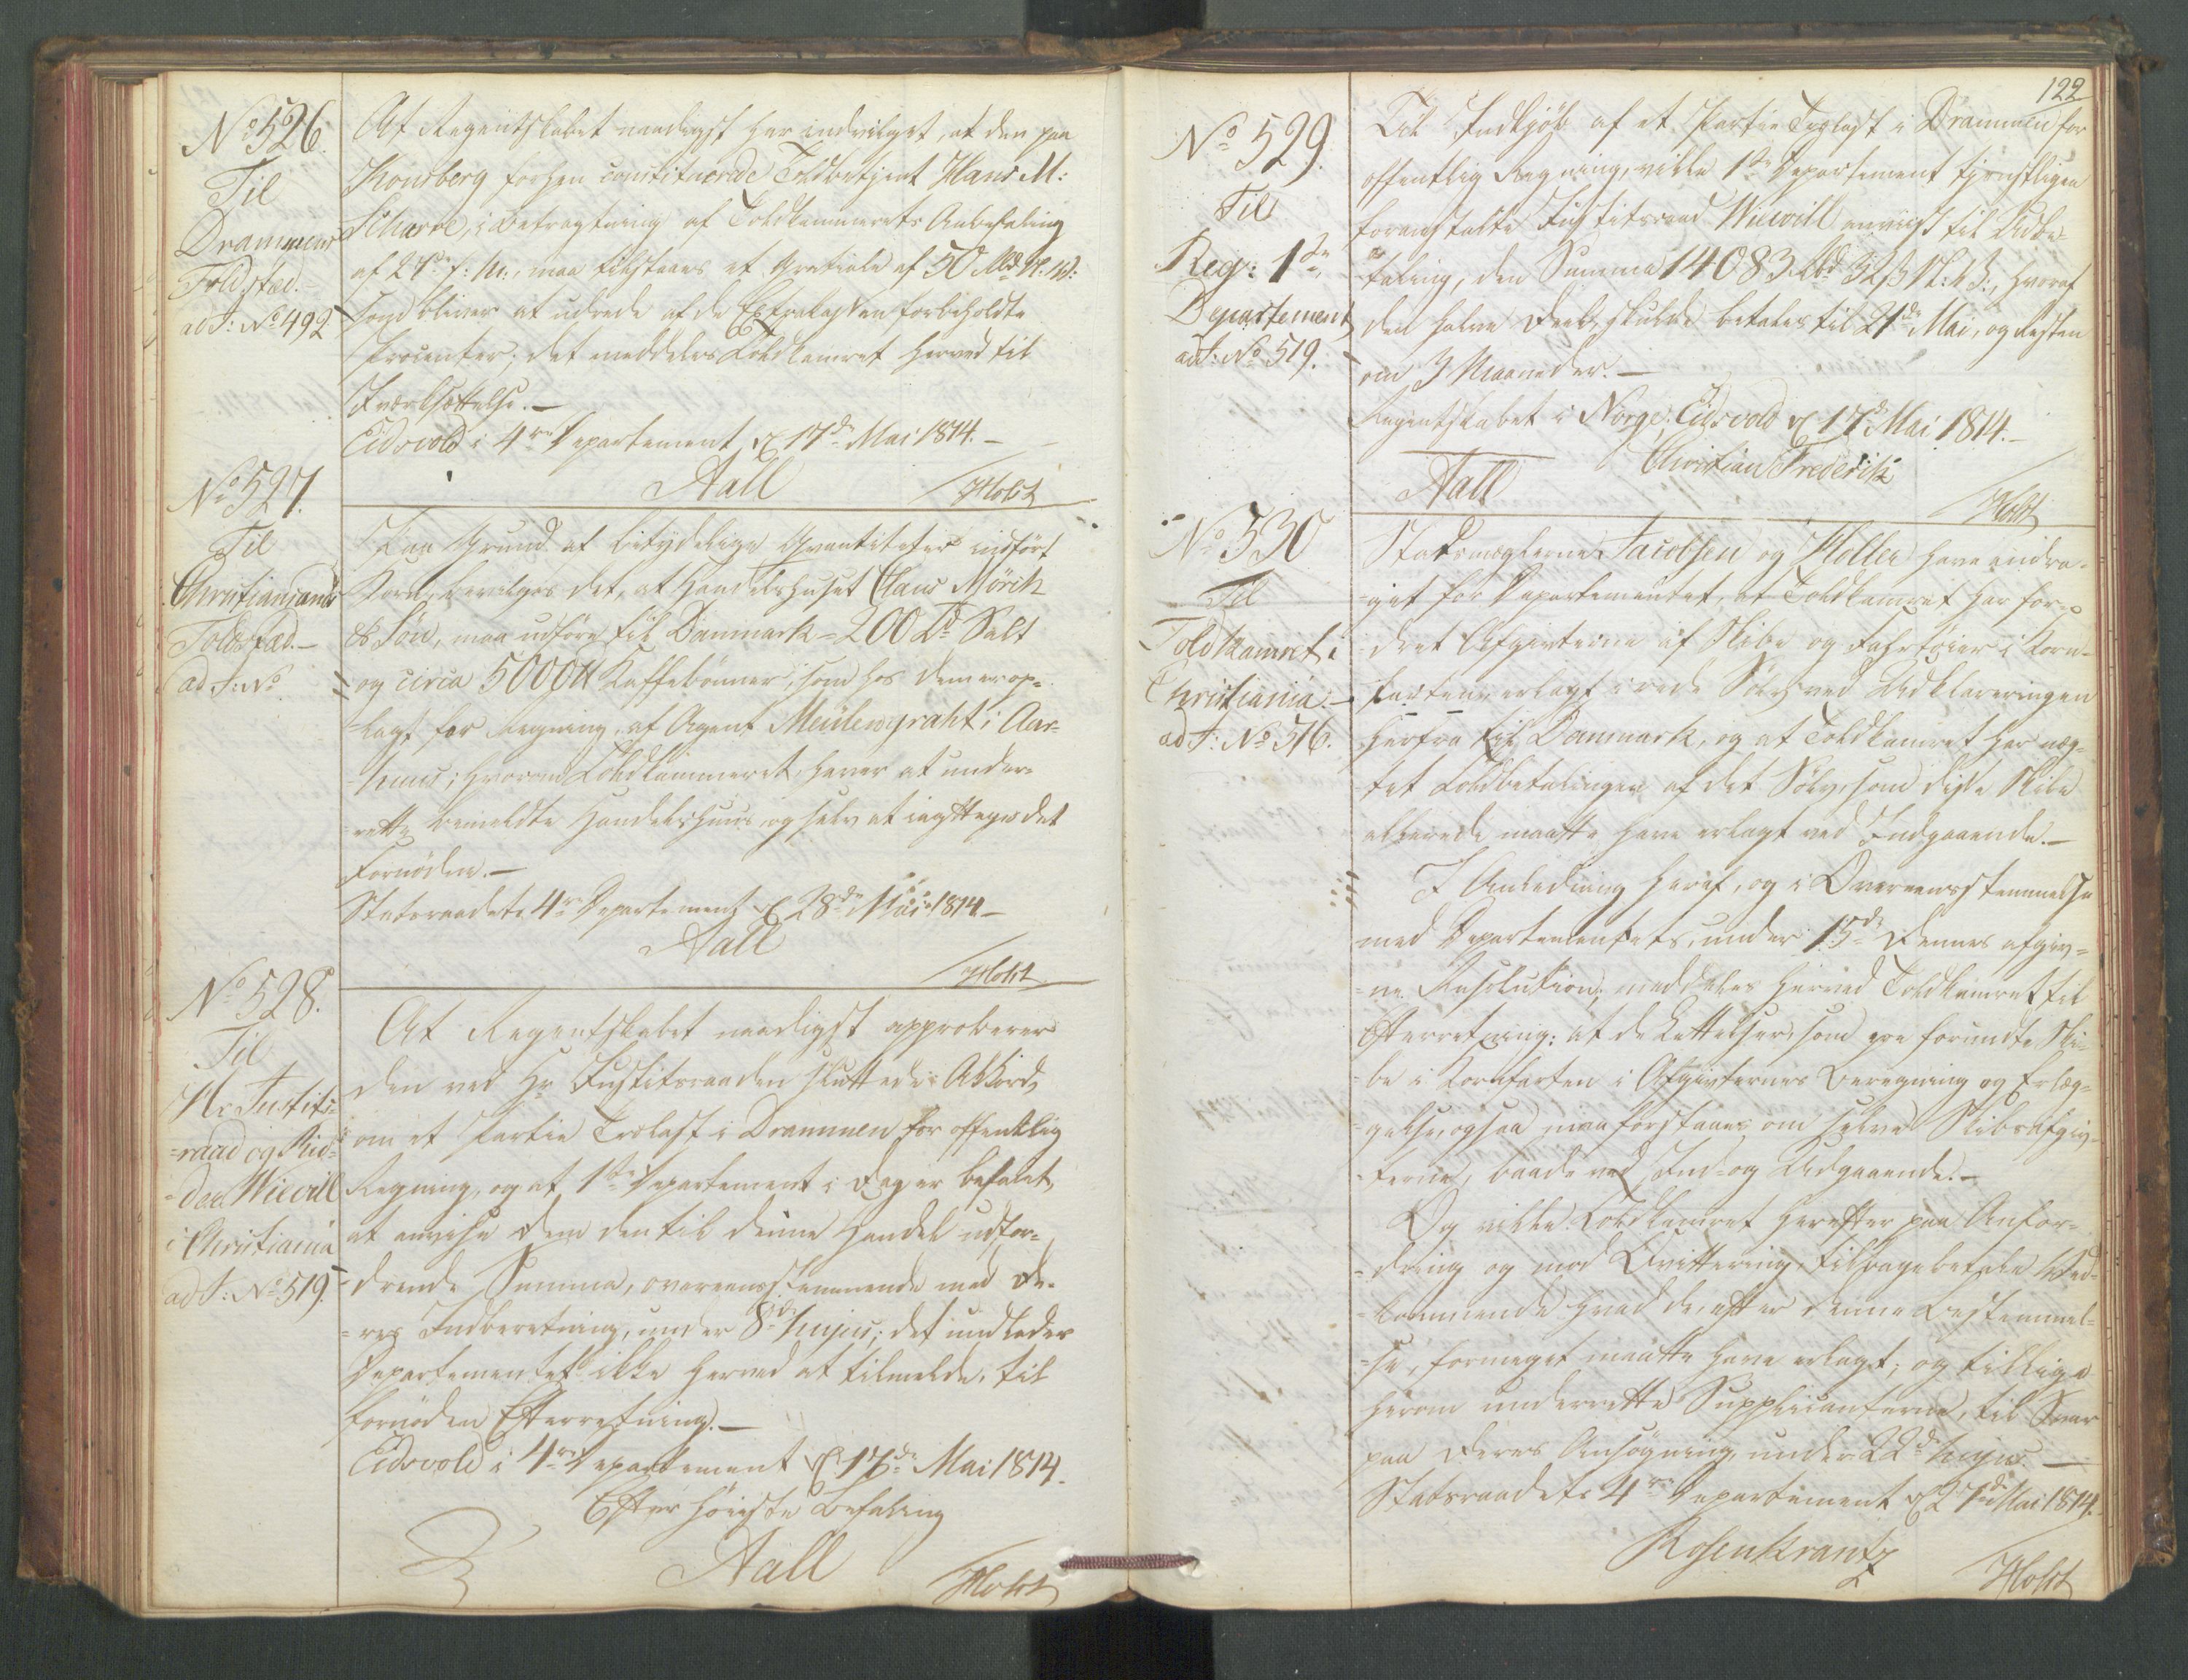 No 526.
Til
Drammens
Toldsted.
ad J: No 492
At Regentskabet naadigst har indvilget, at den paa
Konsberg forhen constituerede Toldbetjent Hans M:
Scharre, i Betragtning af Toldkammerets Anbefaling
af 27de f: M:, maa tilstaaes et Gratiale af 50 Rbd N: V:
som bliver at udrede af de Extrakassen forbeholdte
Procenter; det meddeles Toldkamret herved til
Iværksættelse.—
Eidsvold i 4de Departement, d 17de Mai 1814.—
Aall
Holst
No 527.
Til
Christiansands
Toldsted.—
ad J: No
Paa Grund af betydelige Qvantiteter indført
Korn, bevilges det, at Handelshuset Claus Mörch
& Søn, maa udføre til Danmark 200 Td Salt
og circa 5000 ℔ Kaffebønner, som hos dem er op-
lagt for Regning af Agent Meulengraht i Aar-
huus; hvorom Toldkammeret haver at under-
rette bemeldte Handelshuus og selv at iagttage det
Fornødne.—
Statsraadets 4de Departement, d 28de Mai 1814—
Aall
Holst
No 528.
Til
Hr Justits-
raad og Rid-
der Wievill
i Christiania
ad J: No 519.
At Regentskabet naadigst approberer
den ved Hr Justitsraaden sluttede Akkord,
om et Partie Trælast i Drammen for offentlig
Regning, og at 1ste Departement i Dag er befalet,
at anvise Dem den til denne Handel udfor-
drende Summa, overeensstemmende med De-
res Indberetning, under 8de hujus; det undlader
Departementet ikke herved at tilmelde, til
fornøden Efterretning.—
Eidsvold i 4de Departement d 17de Mai 1814.
Efter høieste Befaling
Aall
Holst
122
No 529.
Til
Reg: 1ste
Departement
ad J: No 519.
Til Indkjøb af et Partie Trælast i Drammen for
offentlig Regning, ville 1ste Departement tjenstligen
foranstalte Justitsraad Wievill anviist til Udbe-
taling, den Summa 14083 Rbd 32 ß N: V:, hvoraf
den halve Deel skulde betales til 21de Mai, og Resten
om 3 Maaneder.—
Regentskabet i Norge, Eidsvold d 17de Mai 1814.—
Christian Frederik
Aall
Holst
No 530
Til
Toldkamret i
Christiania.—
ad J: No 516.
Stadsmæglerne Jacobsen og Møller have andra-
get for Departementet, at Toldkamret har for-
dret Afgivterne af Skibe og Fahrtøier i Korn-
farten, erlagt i rede Sølv, ved Udklareringen
herfra til Danmark, og at Toldkamret har næg-
tet Tilbetalingen af det Sølv, som disse Skibe
allerede maatte have erlagt ved Indgaaende.—
I Anledning heraf, og i Overeensstemmelse
med Departementets, under 15de Dennes afgiv-
ne Resolution, meddeles herved Toldkamret til
Efterretning: at de Lettelser, som ere forundte Ski-
be i Kornfarten i Afgivternes Beregning og Erlæg-
gelse, ogsaa maa forstaaes om selve Skibsafgiv-
terne, baade ved Ind- og Udgaaende.—
Og ville Toldkamret herefter paa Anfor-
dring og mod Qvittering, tilbagebetale Ved-
kommende hvad de, efter denne Bestemmel-
se, formeget maatte have erlagt; og tillige
herom underrette Supplicanterne, til Svar
paa deres Ansøgning, under 22de hujus.—
Statsraadets 4de Departement d 27de Mai 1814.
Rosenkrantz
Holst